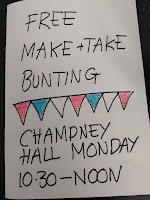 FREE
MAKE + TAKE
BUNTING
CHAMPNEY
HALL MONDAY
10.30-NOON